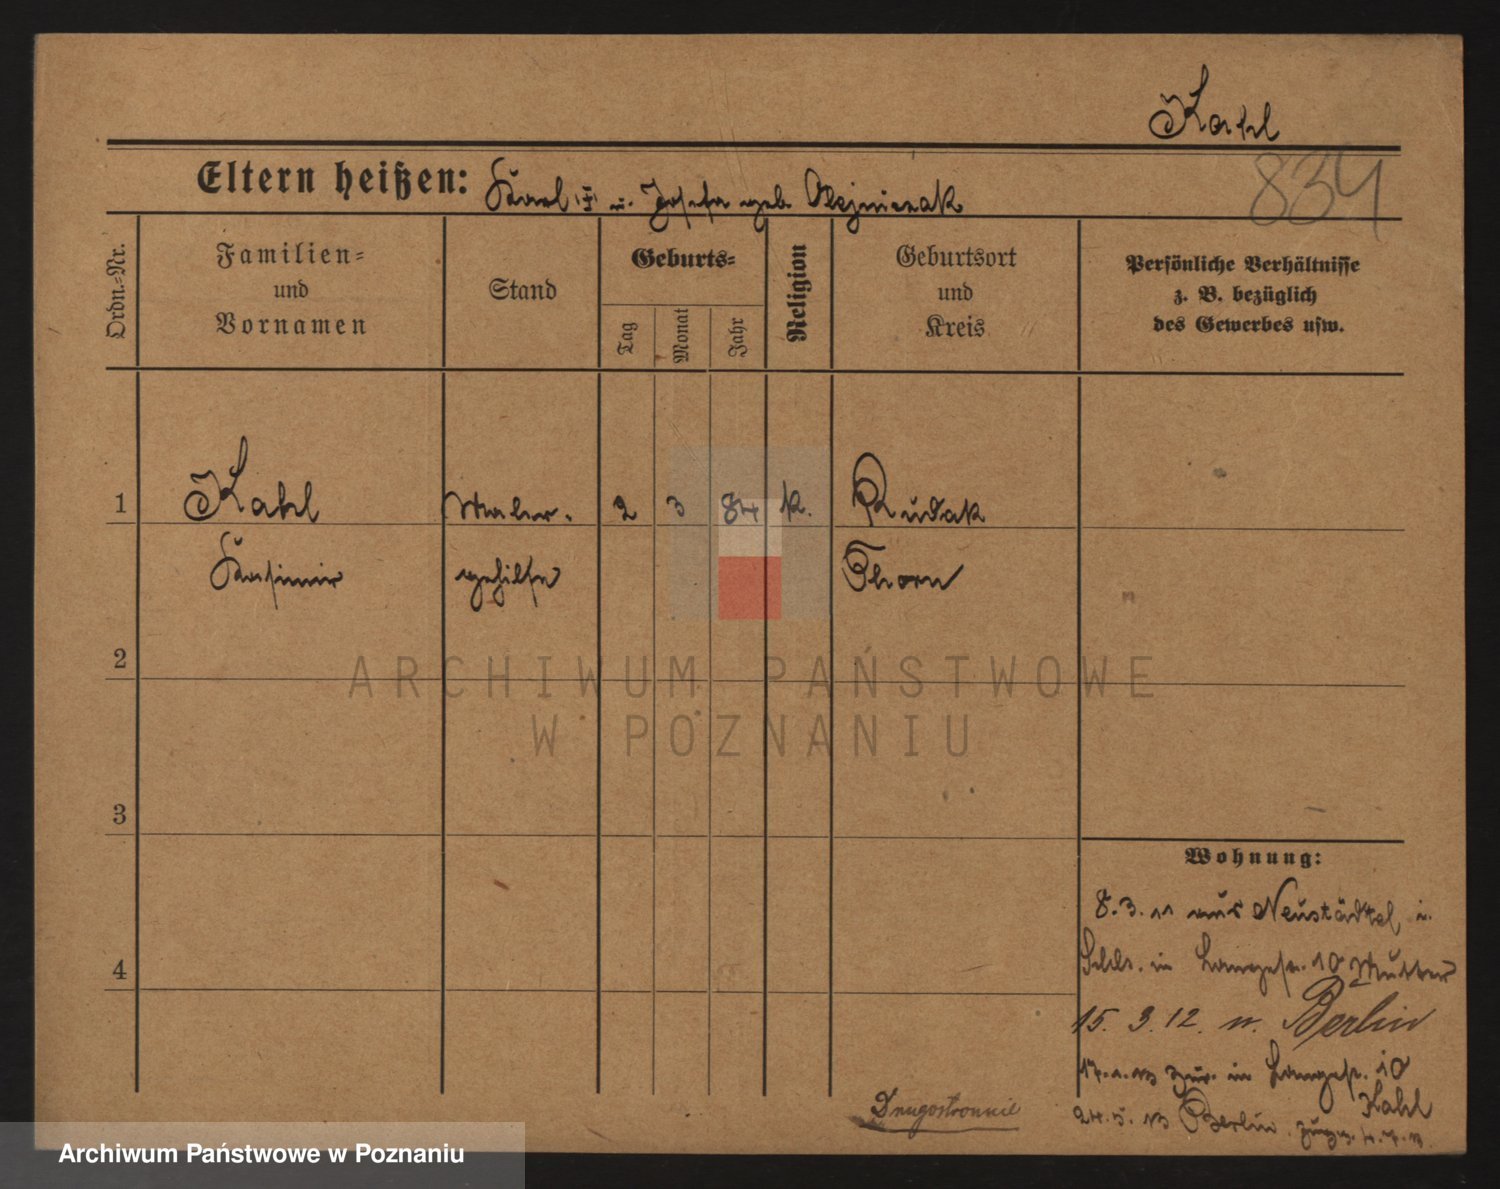 Kahl
834
Eltern heißen: Karl u. Josefa geb. Olejniczak
Ordn.-Nr.
Familien-
und
Vornamen
Stand
Geburts-
Tag
Monat
Jahr
Religion
Geburtsort
und
Kreis
Persönliche Verhältnisse
z. B. bezüglich
des Gewerbes usw.
1 Kahl Maler- 2 3 84 k. Rudak
Kasimir gehilfe Thorn
2
3
4
ARCHIWUM PAŃSTWOWE
W POZNANIU
Wohnung:
8.3.11 aus Neustädtel i.
Schls. in Langestr. 10 Mutter
15. 3. 12. n. Berlin
17.1.13 zur. in Langestr. 10
Kahl
24.5.13 Berlin.
Drugostronnie
Archiwum Państwowe w Poznaniu